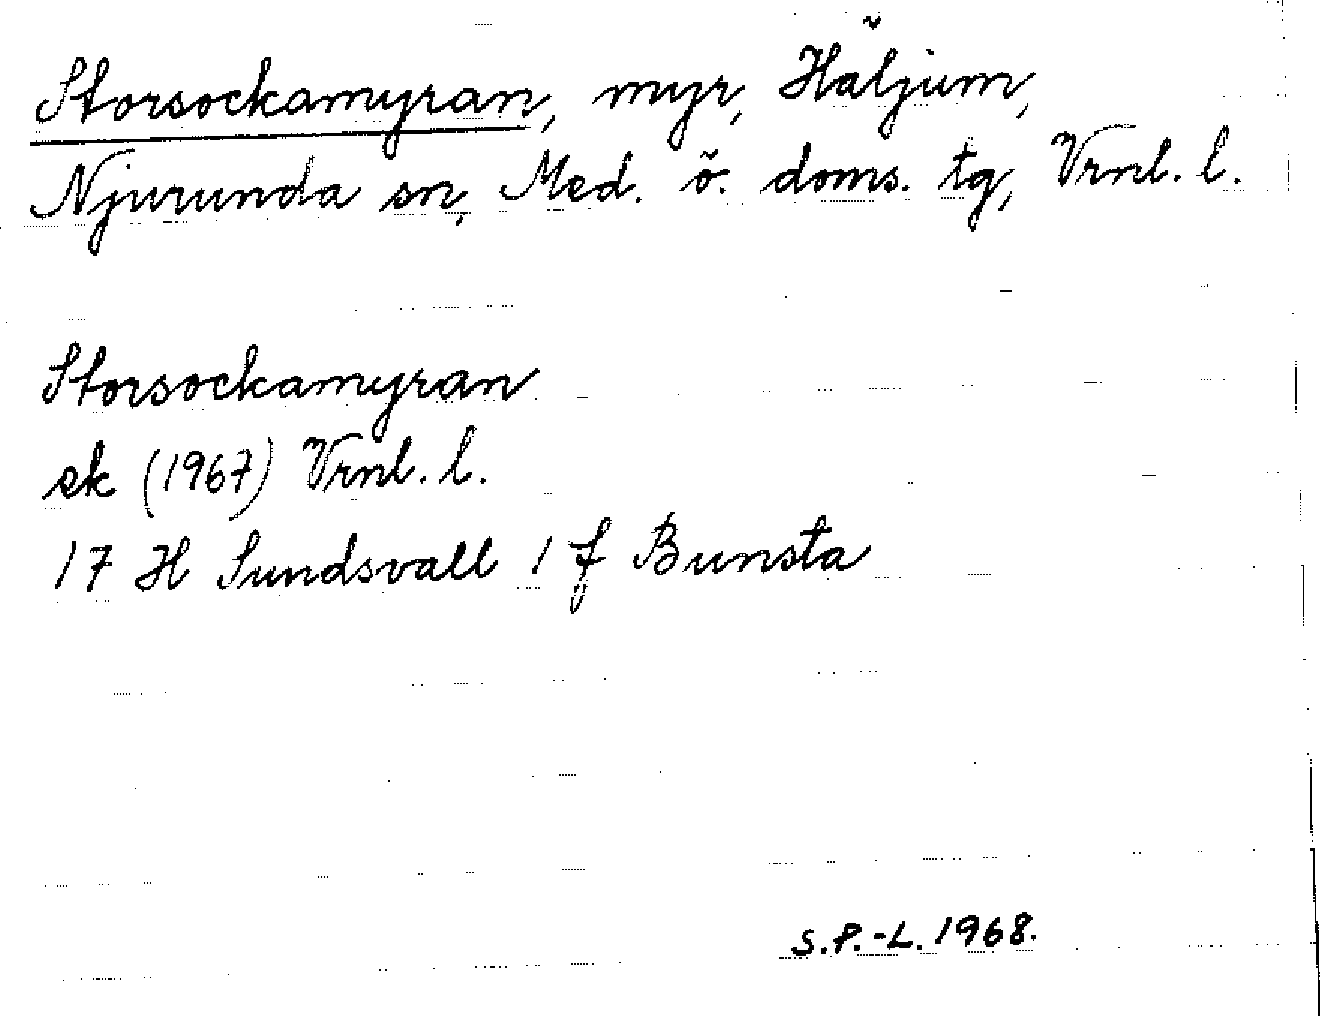 Storsockamyran, myr, Häljum,
Njurunda sn, Med. ö. doms. tg, Vrnl. l.
Storsockamyran
ek (1967) Vrnl. l.
17 H Sundsvall 1 f Bunsta
S.P.-L. 1968.